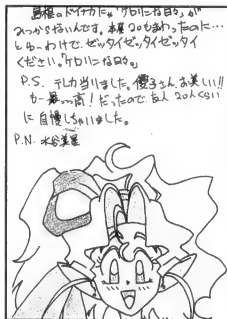 島根のドイナカだから「ケロリンな日々」が
みつからないんです。本屋20もまわったのに…
とゆーわけで、ゼッタイゼッタイゼッタイ
ください。「ケロリンな日々」
P.S. テレカ当りました。優子さん、お美しい!!
もー最っっ高!だったので友人20人くらい
に自慢しちゃいました。
P.N. 水谷美星